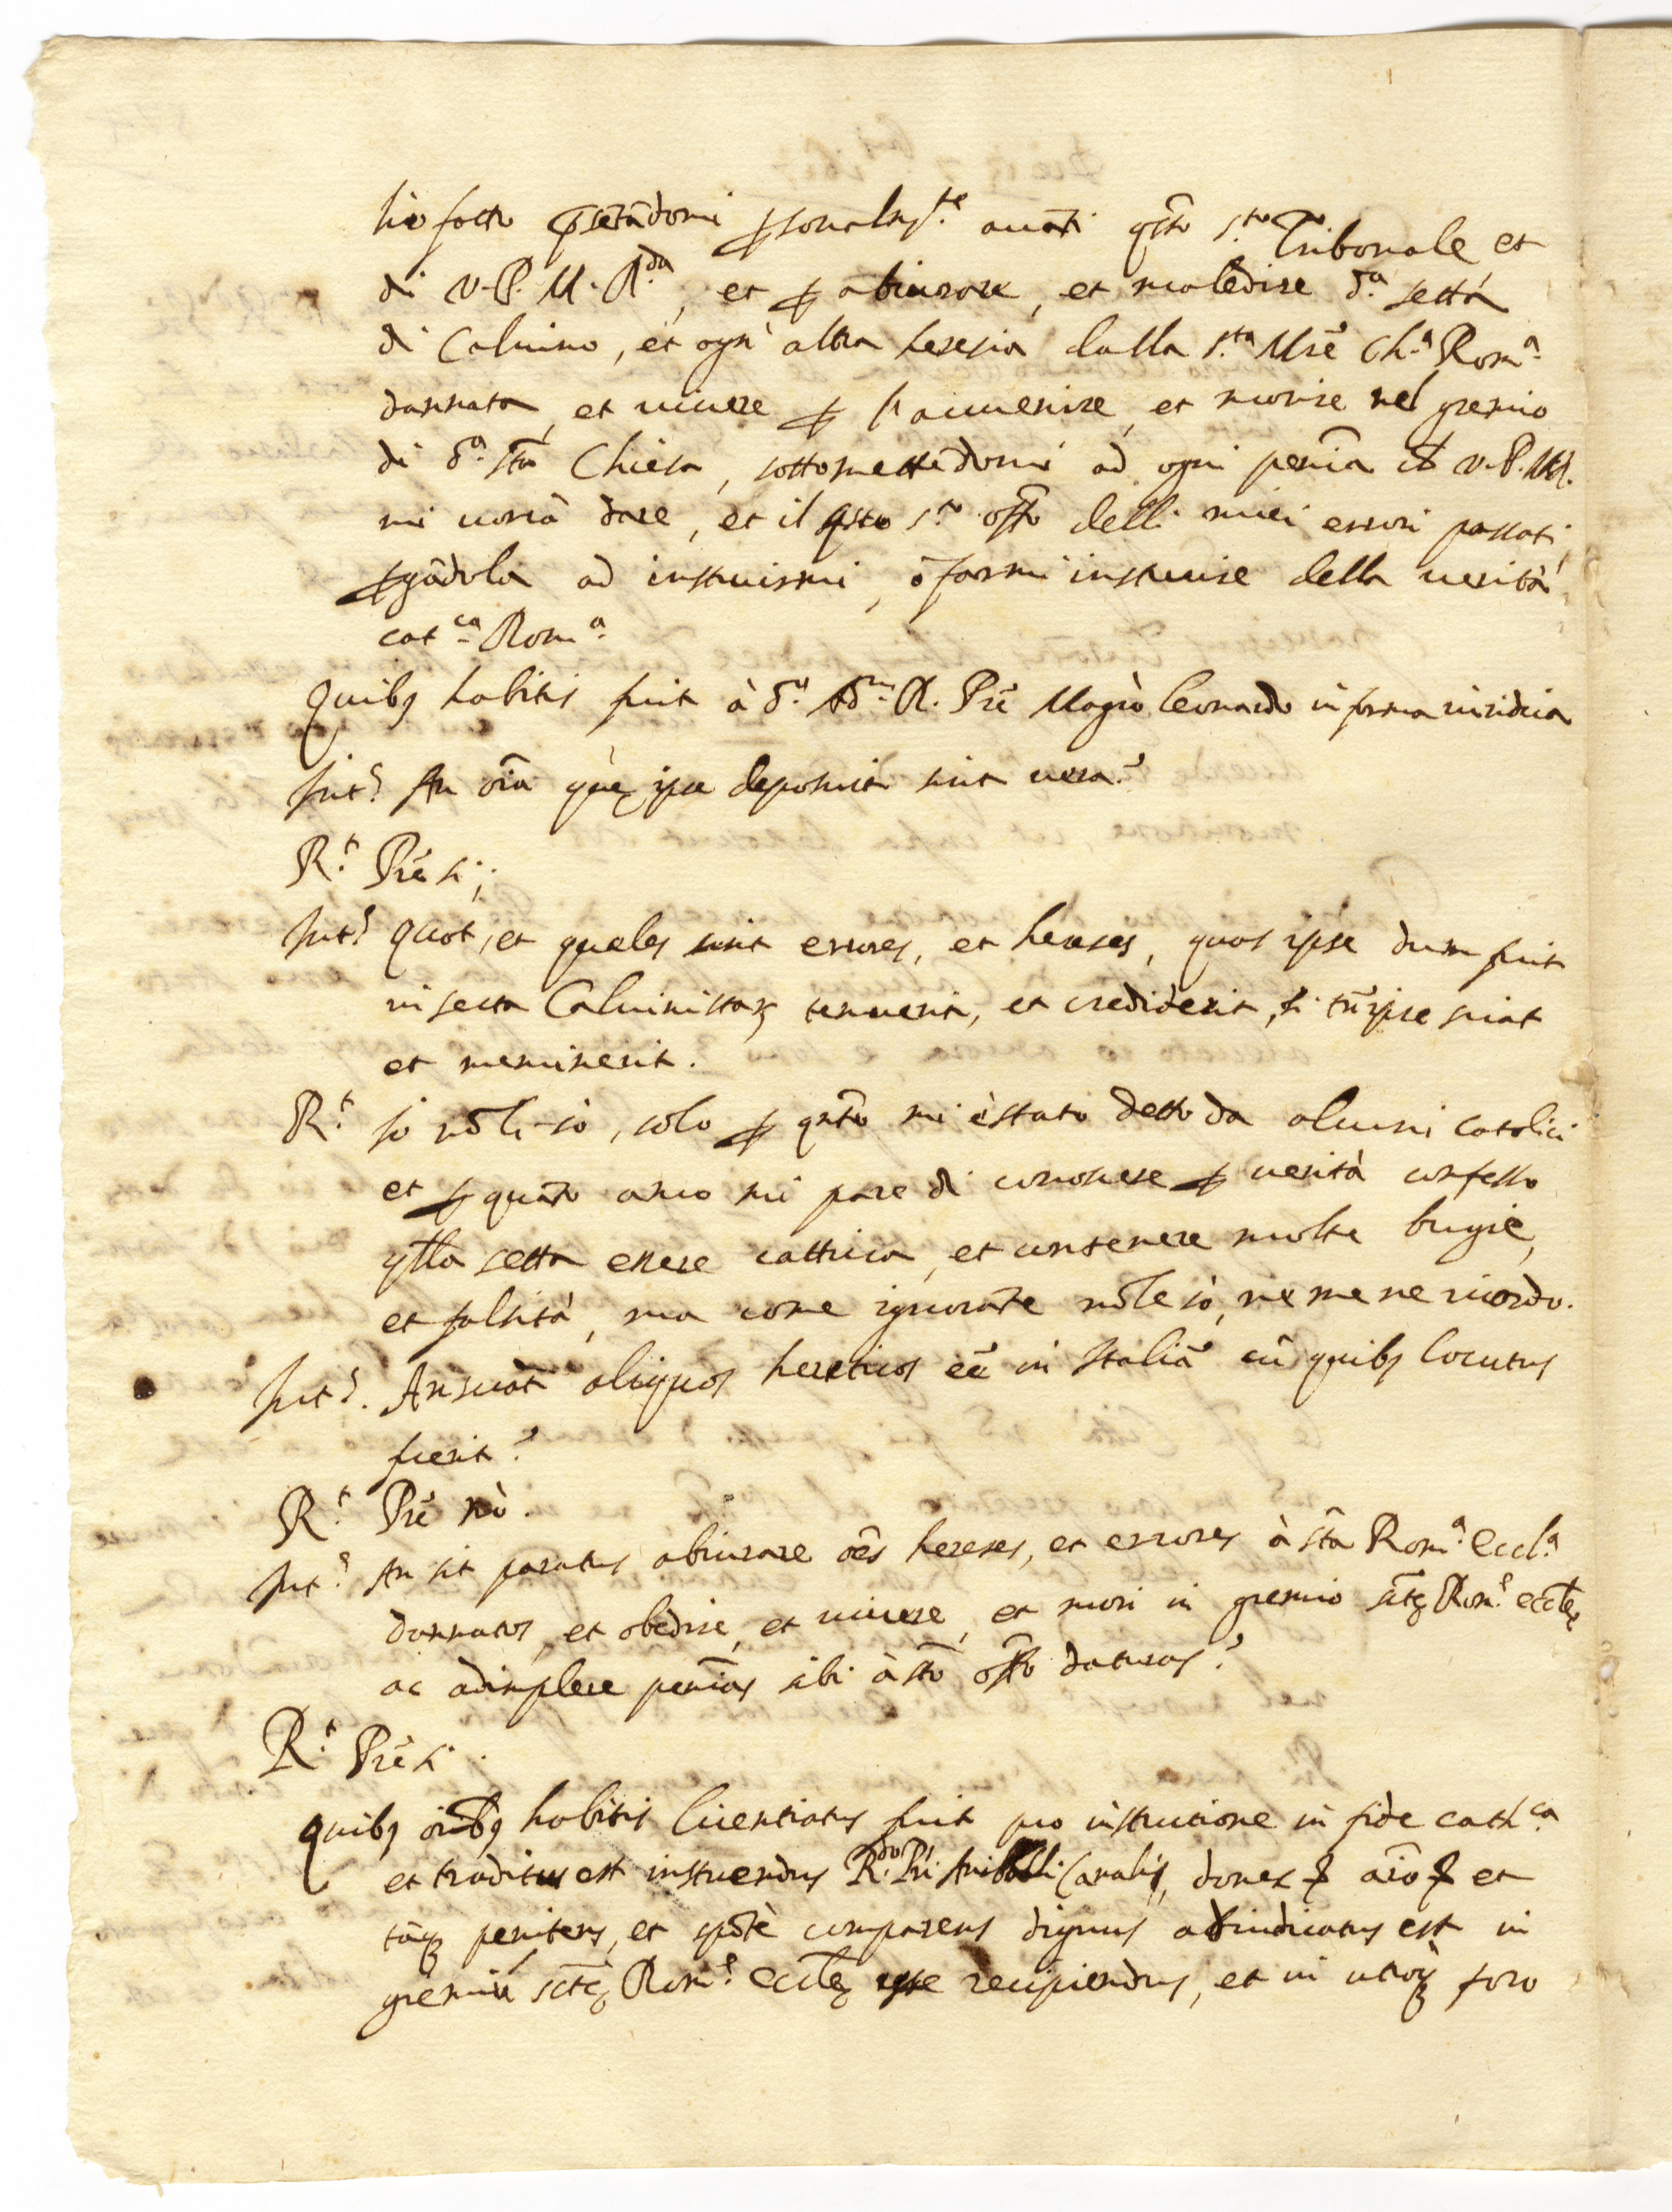 hò fatto p̃setãdomi ꝑsonalm.te auãti q̃sto s.to Tribonale et
di V. P. M. R.da, et ꝑ abiurare, et maledire d.a setta
di Caluino, et ogn' altra heresia dalla s.ta Mrẽ Ch.a Rom.a
dannata, et uiuere ꝑ l'auuenire, et morire nel gremio
di d.a sta Chiesa, sottomettẽdomi ad ogni penĩa ch V. P. M.R.
mi uorrà dare, et il q̃sto s.to offo delli miei errori passati,
ꝑgãdola ad instruirmi, ò farmi instruire della uerità
cat.ca Rom.a
Quibꝫ habitis fuit à d.o Ad.m R. Prẽ Magrò Leonardo in forma iuridica
Int.s An oĩa quę ipse deposuit sint uera?
R.t Prẽ si;
Int.s Quot, et quales sint errores, et hereses, quos ipse dum fuit
in secta Caluinistaꝝ tenuerit, et crediderit, si tñ ipse sciat
et meminerit.
R.t Io nõ li sò, solo ꝑ qñto mi è stato detto da alcuni Catolici
et ꝑ quãto anco mi pare di conoscere ꝑ uerità confesso
q̃lla setta essere cattiua, et contenere molte bugie,
et falsità, ma come ignorãte nõ le sò, ne me ne ricordo.
Int.s. An sciat aliquos hereticos eẽ in Italiã cũ quibꝫ locutus
fuerit?
R.t Prẽ nò.
Int.s An sit paratus abiurare oẽs hereses, et errores à sta Rom.a Eccl.a
damnatos, et obedire, et uiuere, et mori in gremio stę Rom.e eccłę
ac adimplere penĩas sibi à sto offo daturas?
R.t Prẽ si.
Quibꝫ oĩbꝫ habitis licentiatus fuit pro instructione in fide cath.ca
et traditus est instruendus R.do Pri Canalis, donec et
tãqꝫ penitens, et spõtè comparens dignus adiudicatus est in
gremiũ sctę Rom.e eccłę esse recipiendus, et in utroqꝫ foro